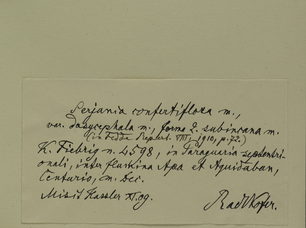 Serjania confertiflora m.,
var. dasycephala m., forma 2. subincana m.
(in Fedde Repert. VIII, 1910, p. 72.)
K. Fiebrig n. 4598, in Paraguaria septentri-
onali, inter flumina Apa et Aquidaban,
Centurio, m. Dec.
Misit Hassler XI. 09.
Radlkofer.